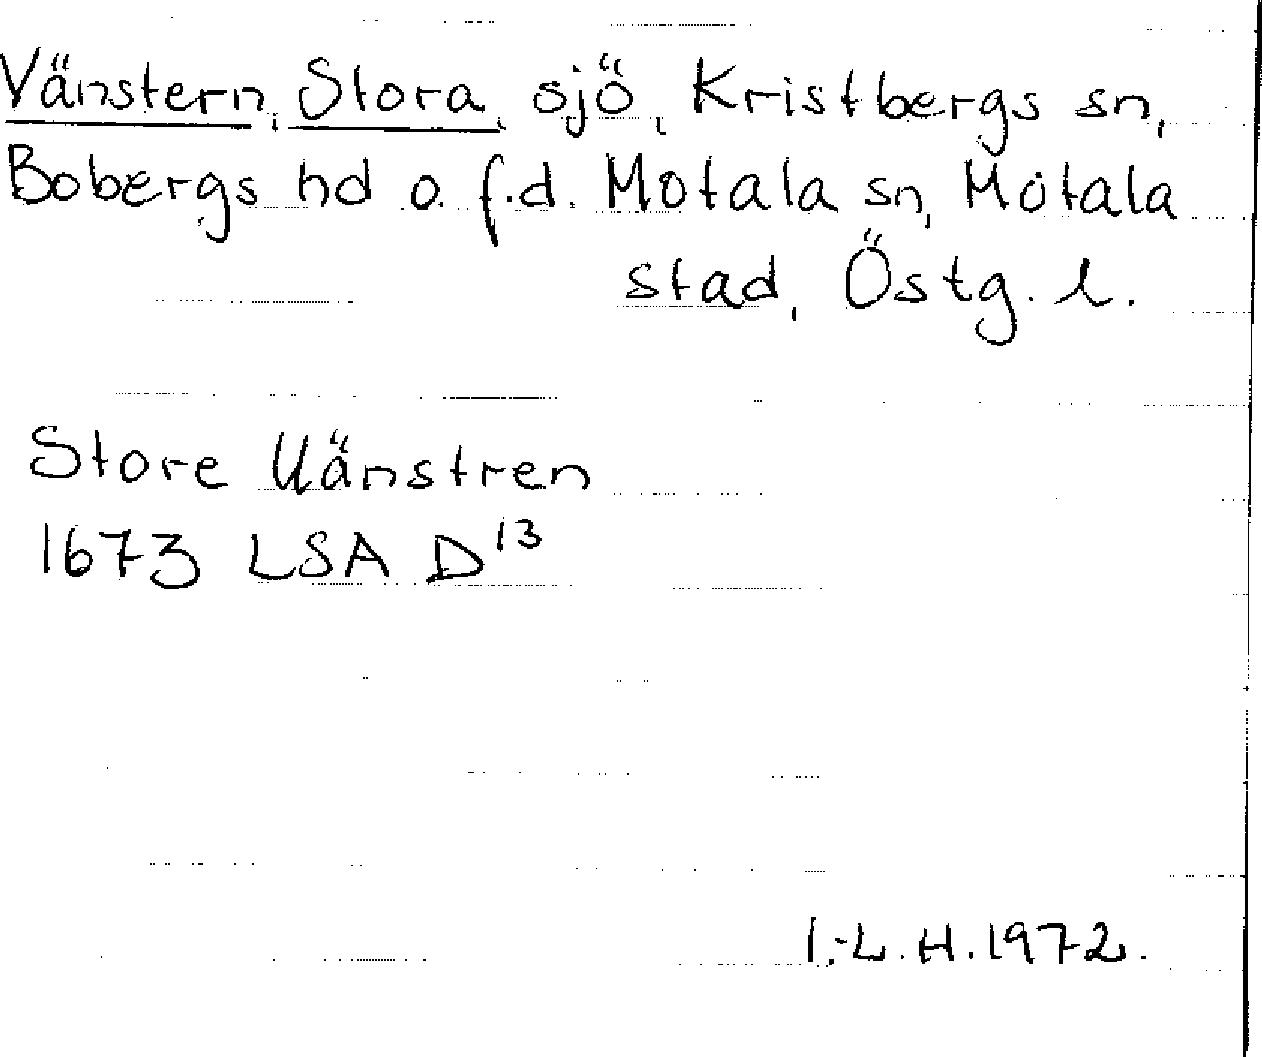 Vänstern, Stora, sjö, Kristbergs sn,
Bobergs hd o. f.d. Motala sn, Motala
stad, Östg. l.
Store Uänstren
1673 LSA D¹³
I.-L.H.1972.